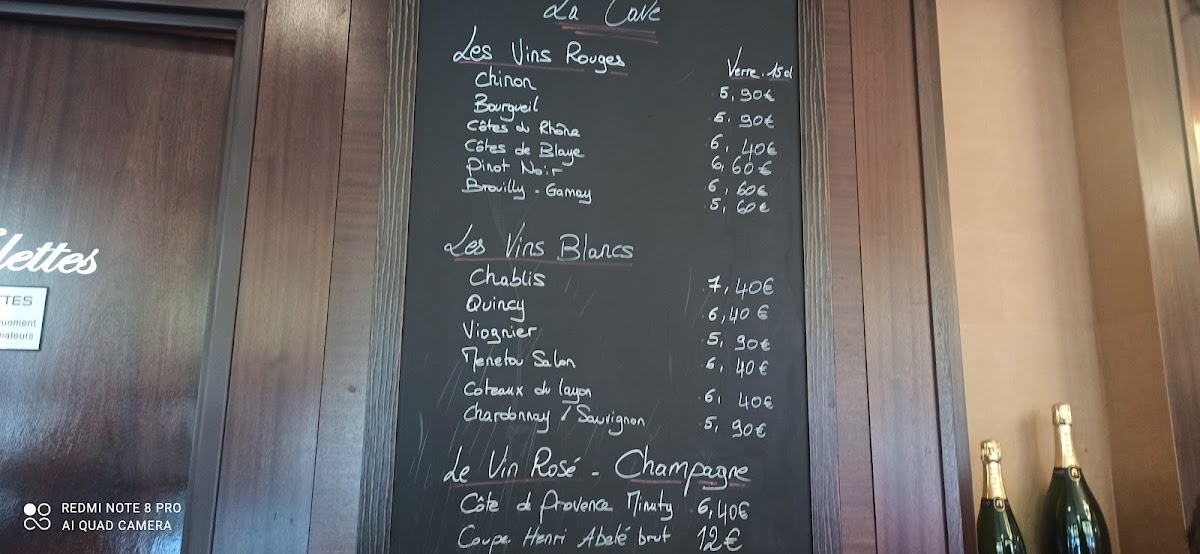 La Cave
Les Vins Rouges Verre. 15cl
Chinon 5,90€
Bourgueil 5,90€
Côtes du Rhône 6,40€
Côtes de Blaye 6,60€
Pinot Noir 6,60€
Brouilly - Gamay 5,60€
Les Vins Blancs
Chablis 7,40€
Quincy 6,40€
Viognier 5,90€
Menetou Salon 6,40€
Coteaux du layon 6,40€
Chardonnay / Sauvignon 5,90€
Le Vin Rosé - Champagne
Côte de provence Minuty 6,40€
Coupe Henri Abelé brut 12€
lettes
TTES
uement
mateurs
REDMI NOTE 8 PRO
AI QUAD CAMERA